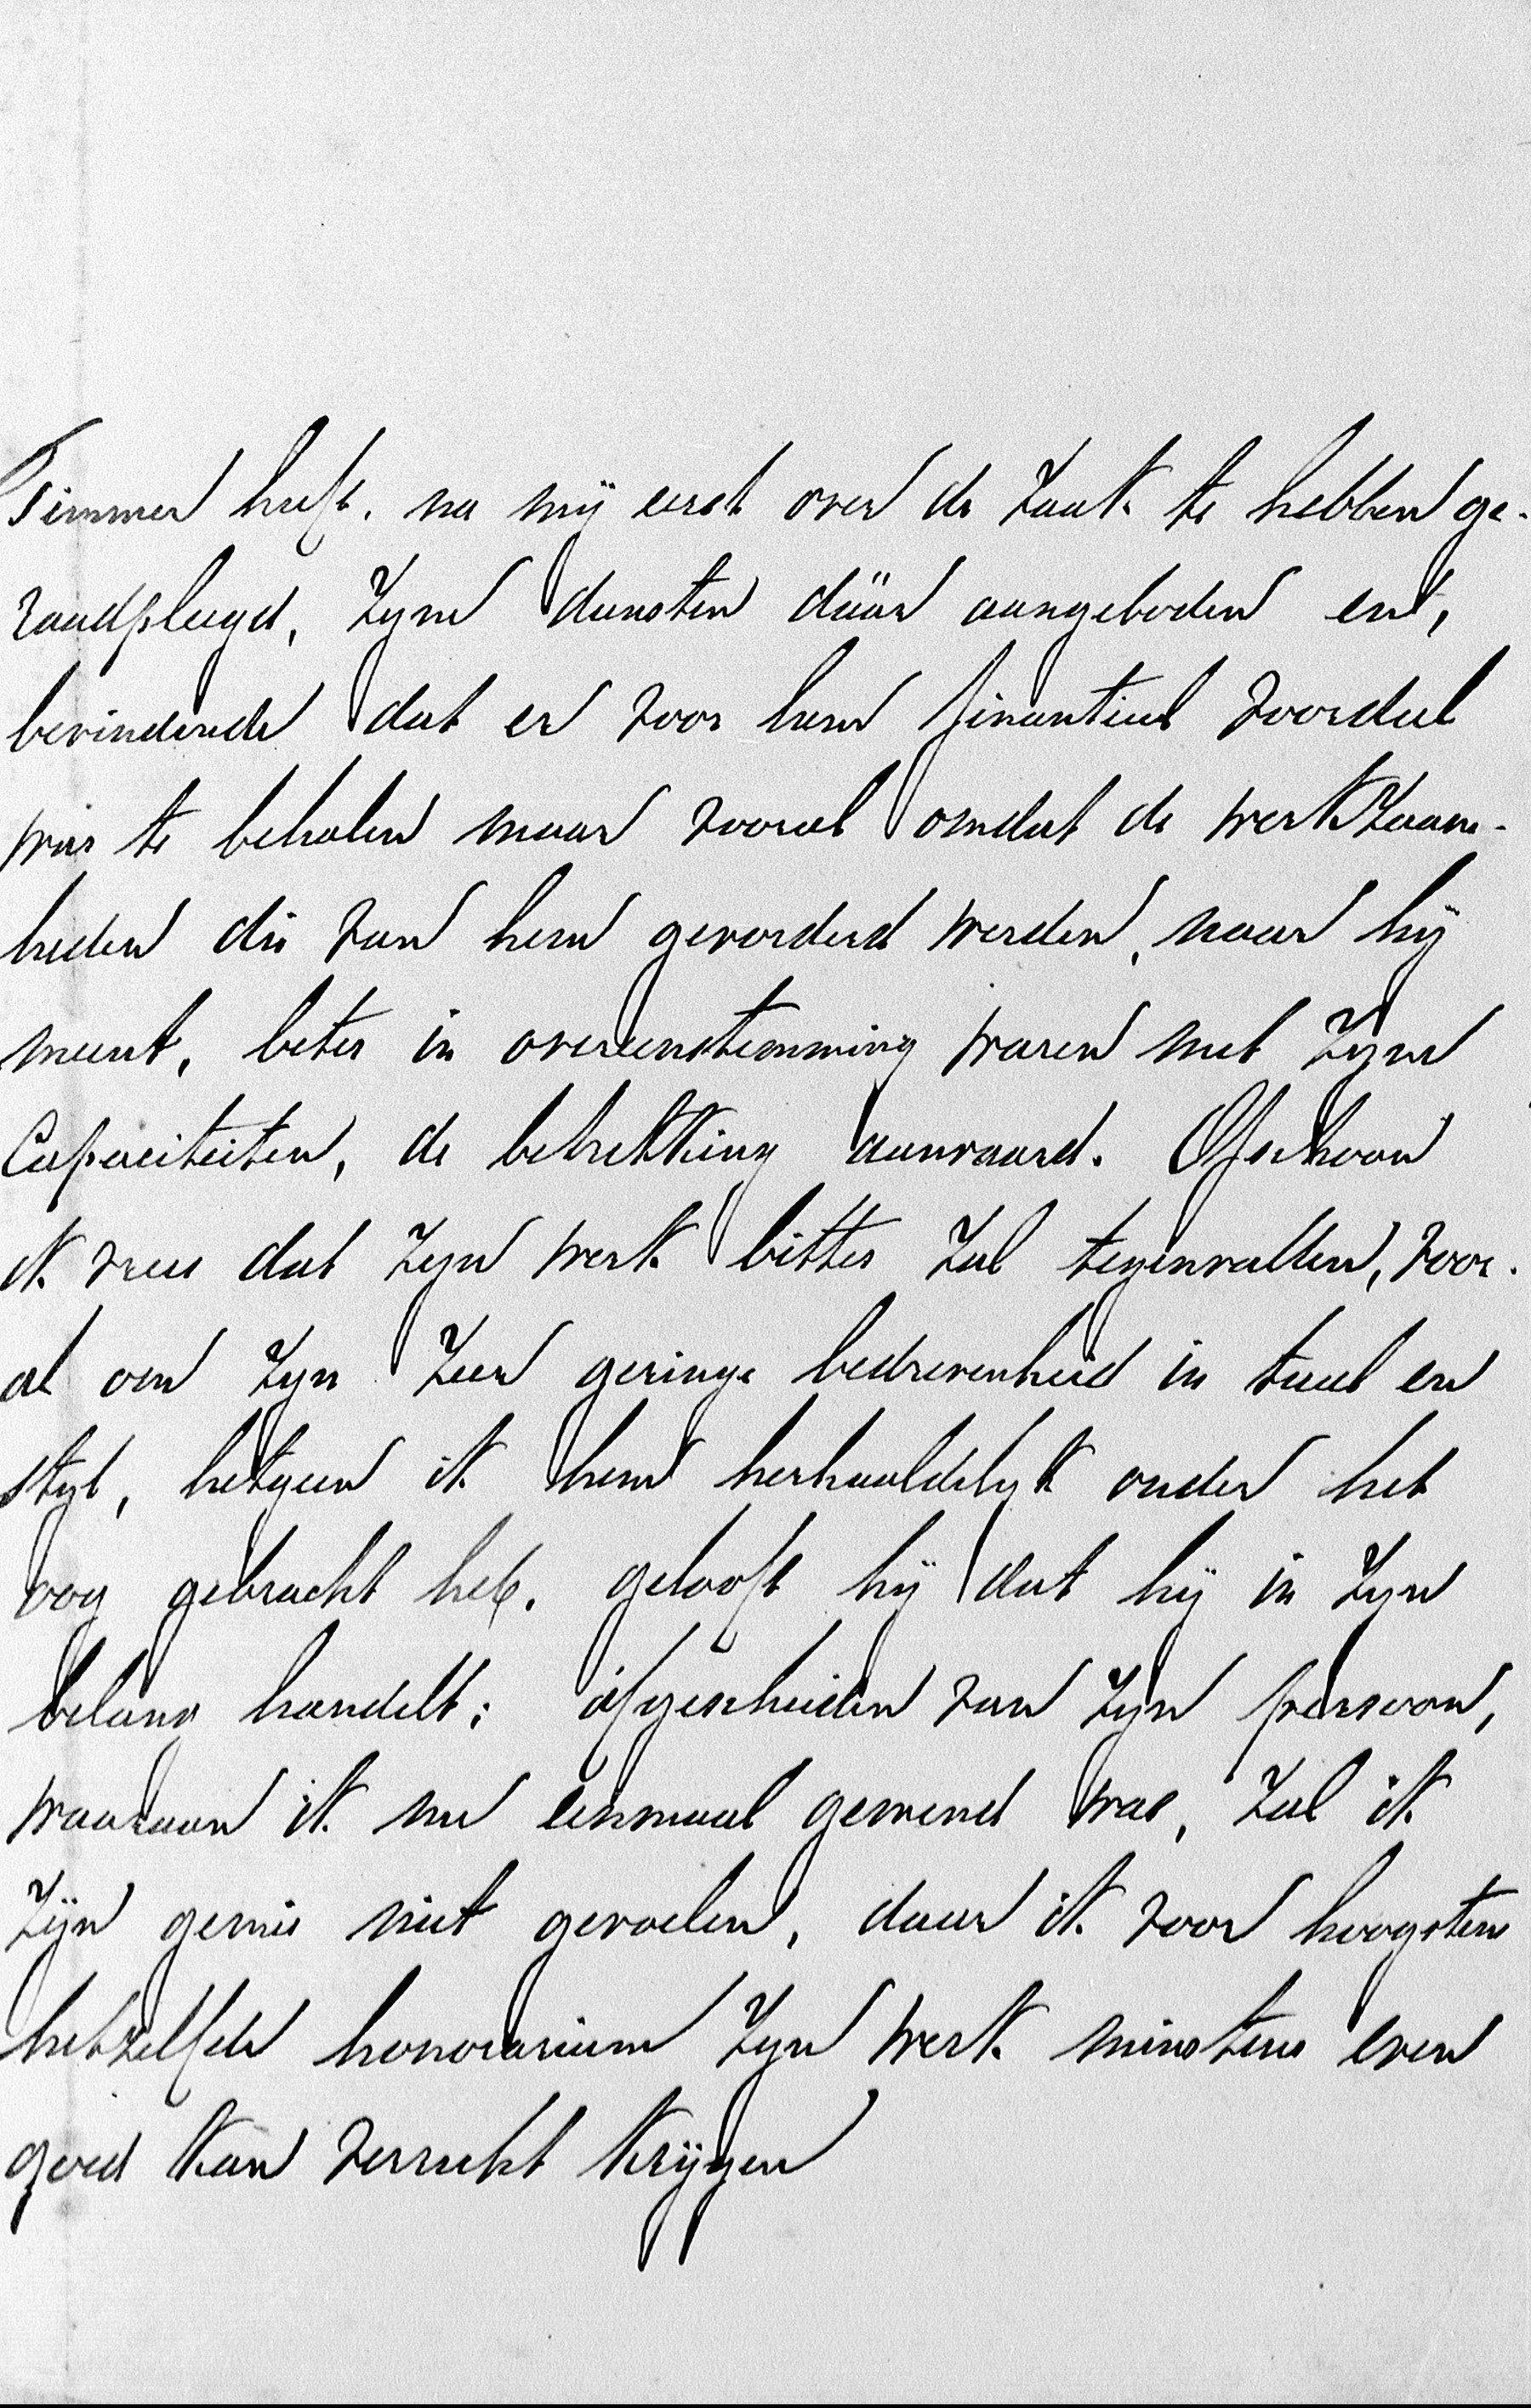 Timmer heeft, na mij eerst over de zaak te hebben ge-
raadpleegd, zyne diensten däär aangeboden en,
bevindende dat er voor hem finantieel voordeel
was te behalen maar vooral omdat de werkzaam-
heden die van hem gevorderd werden, naar hij
meent, beter in overeenstemming waren met zyne
Capaciteiten, de betrekking aanvaard. Ofschoon
ik vrees dat zyn werk bitter zal tegenvallen, voor-
al om zyn zeer geringe bedrevenheid in taal en
styl, hetgeen ik hem herhaaldelyk onder het
oog gebracht heb, gelooft hij dat hij in zyn
belang handelt; afgescheiden van zyn persoon,
waaraan ik nu eenmaal gewend was, zal ik
zijn gemis niet gevoelen, daar ik voor hoogstens
hetzelfde honorarium zyn werk minstens even
goed kan verricht krijgen